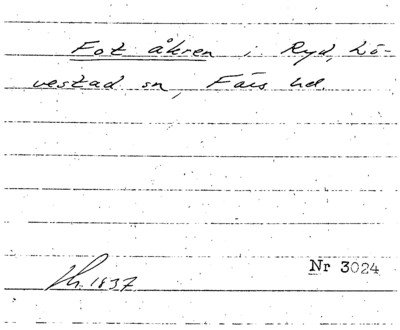 Fot åkren i Ryd, Lö-
vestad sn, Färs hd.
Nr 3024
1837